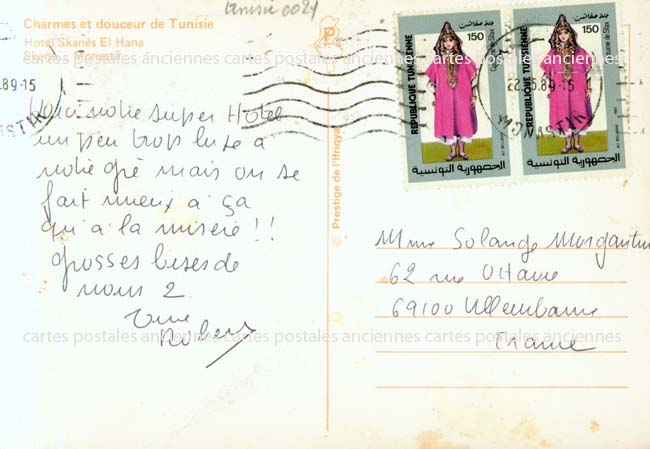 Charmes et douceur de Tunisie
Hotel Skanès El Hana
Skanès - Monastir
tunisie 0021
cartes postales anciennes cartes postales anciennes cartes postales anciennes
.89-15
Voici notre super Hotel
un peu trop luxe à
notre gré mais on se
fait mieux à ça
qu'à la misère !!
grosses bises de
nous 2.
Robert
© Prestige de l'Ifriqya
150
REPUBLIQUE TUNISIENNE
Costume de Sfax
الجمهورية التونسية
150
REPUBLIQUE TUNISIENNE
Costume de Sfax
الجمهورية التونسية
MONASTIR
Mme Solange
62 rue
69100 Villeurbanne
France
cartes postales anciennes cartes postales anciennes cartes postales anciennes